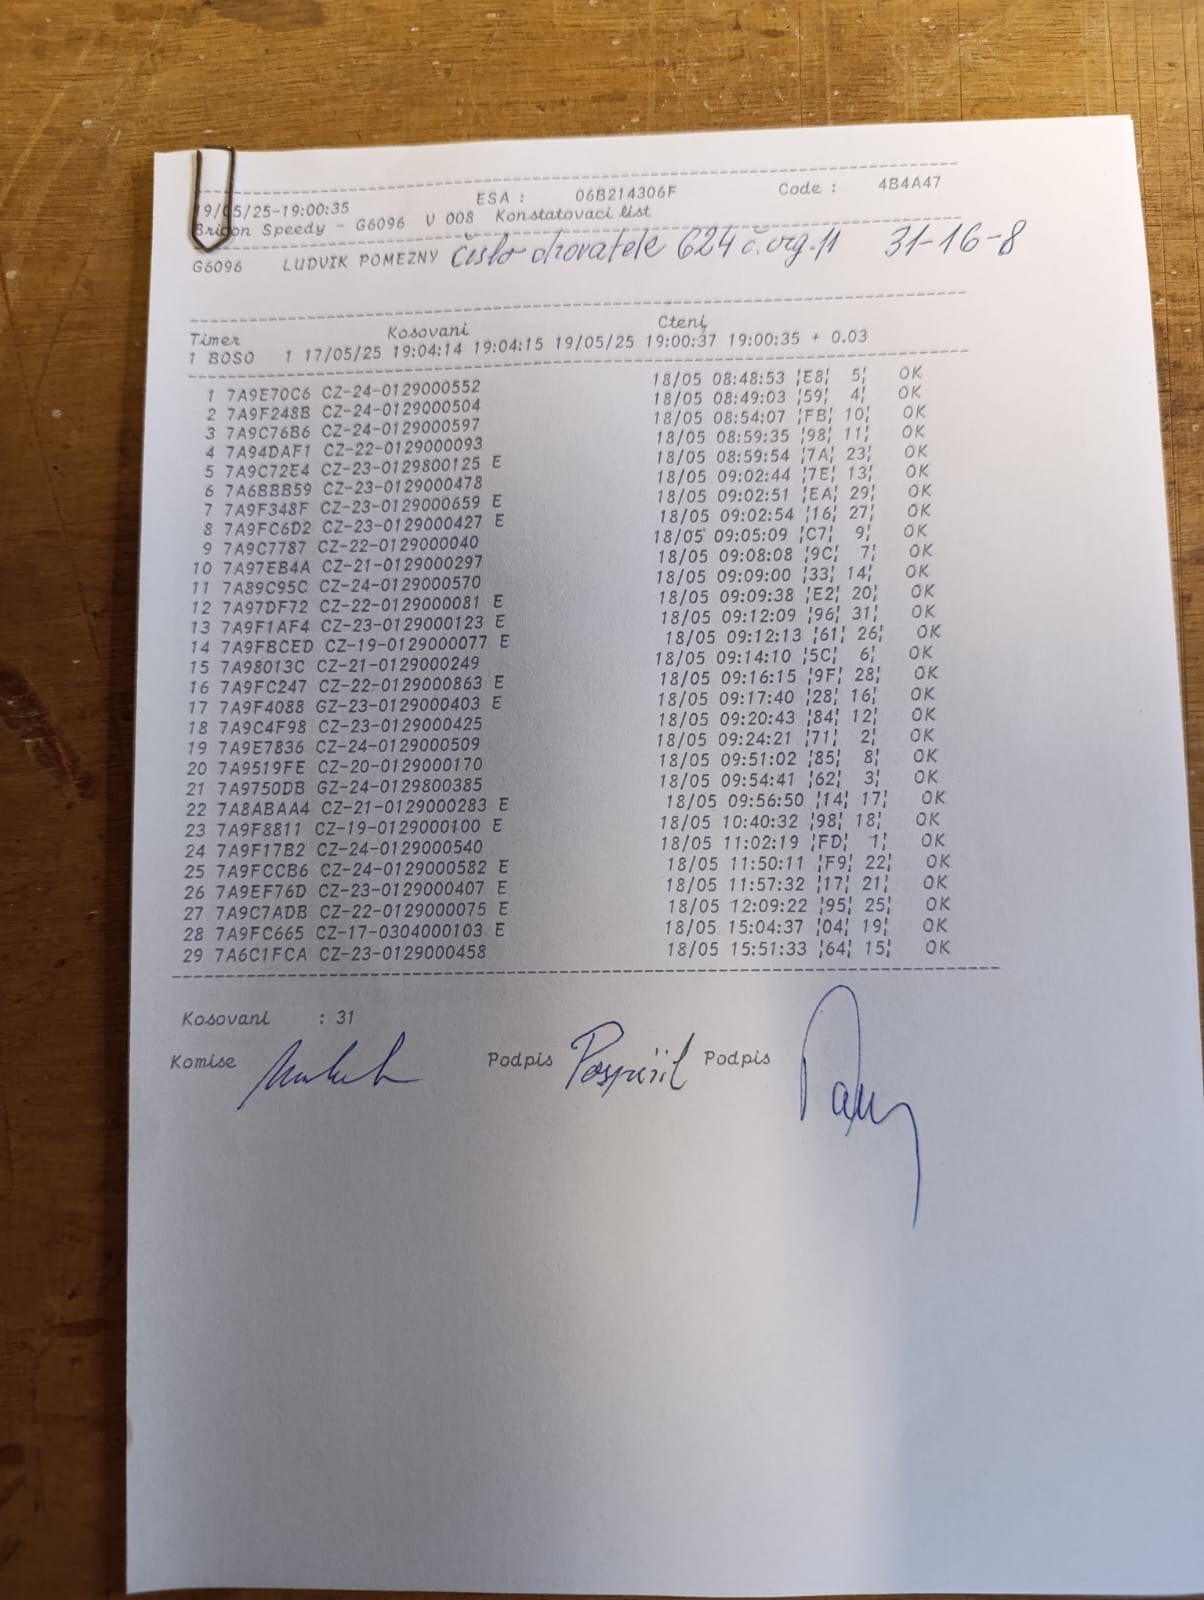 ESA : 06B214306F Code : 4B4A47
9/05/25-19:00:35
Bricon Speedy - G6096 V 008 Konstatovaci list
G6096 LUDVIK POMEZNY číslo chovatele 624 č.org.11 31-16-8
Timer Kosovani Cteni
1 BOSO 1 17/05/25 19:04:14 19:04:15 19/05/25 19:00:37 19:00:35 + 0.03
1 7A9E70C6 CZ-24-0129000552 18/05 08:48:53 ¦E8¦ 5¦ OK
2 7A9F248B CZ-24-0129000504 18/05 08:49:03 ¦59¦ 4¦ OK
3 7A9C76B6 CZ-24-0129000597 18/05 08:54:07 ¦FB¦ 10¦ OK
4 7A94DAF1 CZ-22-0129000093 18/05 08:59:35 ¦98¦ 11¦ OK
5 7A9C72E4 CZ-23-0129800125 E 18/05 08:59:54 ¦7A¦ 23¦ OK
6 7A6BBB59 CZ-23-0129000478 18/05 09:02:44 ¦7E¦ 13¦ OK
7 7A9F348F CZ-23-0129000659 E 18/05 09:02:51 ¦EA¦ 29¦ OK
8 7A9FC6D2 CZ-23-0129000427 E 18/05 09:02:54 ¦16¦ 27¦ OK
9 7A9C7787 CZ-22-0129000040 18/05 09:05:09 ¦C7¦ 9¦ OK
10 7A97EB4A CZ-21-0129000297 18/05 09:08:08 ¦9C¦ 7¦ OK
11 7A89C95C CZ-24-0129000570 18/05 09:09:00 ¦33¦ 14¦ OK
12 7A97DF72 CZ-22-0129000081 E 18/05 09:09:38 ¦E2¦ 20¦ OK
13 7A9F1AF4 CZ-23-0129000123 E 18/05 09:12:09 ¦96¦ 31¦ OK
14 7A9FBCED CZ-19-0129000077 E 18/05 09:12:13 ¦61¦ 26¦ OK
15 7A98013C CZ-21-0129000249 18/05 09:14:10 ¦5C¦ 6¦ OK
16 7A9FC247 CZ-22-0129000863 E 18/05 09:16:15 ¦9F¦ 28¦ OK
17 7A9F4088 GZ-23-0129000403 E 18/05 09:17:40 ¦28¦ 16¦ OK
18 7A9C4F98 CZ-23-0129000425 18/05 09:20:43 ¦84¦ 12¦ OK
19 7A9E7836 CZ-24-0129000509 18/05 09:24:21 ¦71¦ 2¦ OK
20 7A9519FE CZ-20-0129000170 18/05 09:51:02 ¦85¦ 8¦ OK
21 7A9750DB GZ-24-0129800385 18/05 09:54:41 ¦62¦ 3¦ OK
22 7A8ABAA4 CZ-21-0129000283 E 18/05 09:56:50 ¦14¦ 17¦ OK
23 7A9F8811 CZ-19-0129000100 E 18/05 10:40:32 ¦98¦ 18¦ OK
24 7A9F17B2 CZ-24-0129000540 18/05 11:02:19 ¦FD¦ 1¦ OK
25 7A9FCCB6 CZ-24-0129000582 E 18/05 11:50:11 ¦F9¦ 22¦ OK
26 7A9EF76D CZ-23-0129000407 E 18/05 11:57:32 ¦17¦ 21¦ OK
27 7A9C7ADB CZ-22-0129000075 E 18/05 12:09:22 ¦95¦ 25¦ OK
28 7A9FC665 CZ-17-0304000103 E 18/05 15:04:37 ¦04¦ 19¦ OK
29 7A6C1FCA CZ-23-0129000458 18/05 15:51:33 ¦64¦ 15¦ OK
Kosovani : 31
Komise Podpis Pospíšil Podpis